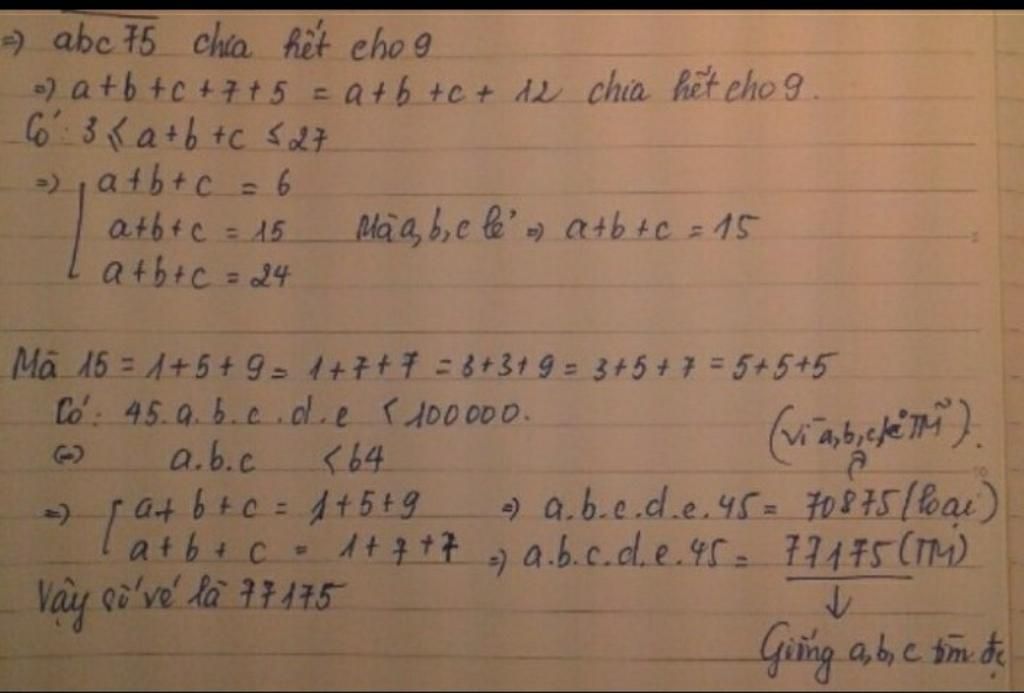 => abc75 chia hết cho 9
=> a+b+c+7+5 = a+b+c+12 chia hết cho 9.
Có: 3 ≤ a+b+c ≤ 27
=> [ a+b+c = 6
a+b+c = 15 Mà a,b,c lẻ => a+b+c = 15
a+b+c = 24
Mà 15 = 1+5+9 = 1+7+7 = 3+3+9 = 3+5+7 = 5+5+5
Có: 45.a.b.c.d.e < 100000.
(vì a,b,c lẻ TM).
<=> a.b.c < 64
=> [ a+b+c = 1+5+9 => a.b.c.d.e.45 = 70875 (loại)
a+b+c = 1+7+7 => a.b.c.d.e.45 = 77175 (TM)
Vậy số vé là 77175
Giống a,b,c tìm đc